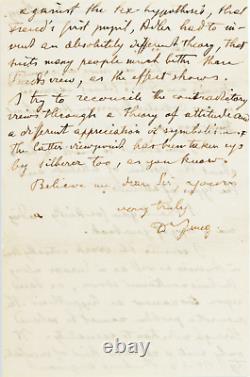 against the sex hypothesis, that
Freud's first pupil, Adler had to in-
vent an absolutely different theory, that
suits many people much better than
Freuds view, as the effect shows.
I try to reconcile the contradictory
views through a theory of attitude and
a different appreciation of symbolism.
the latter viewpoint has been taken up
by Silberer too, as you know.
Believe me, dear Sir, yours
very truly
Dr Jung
© 111am.com